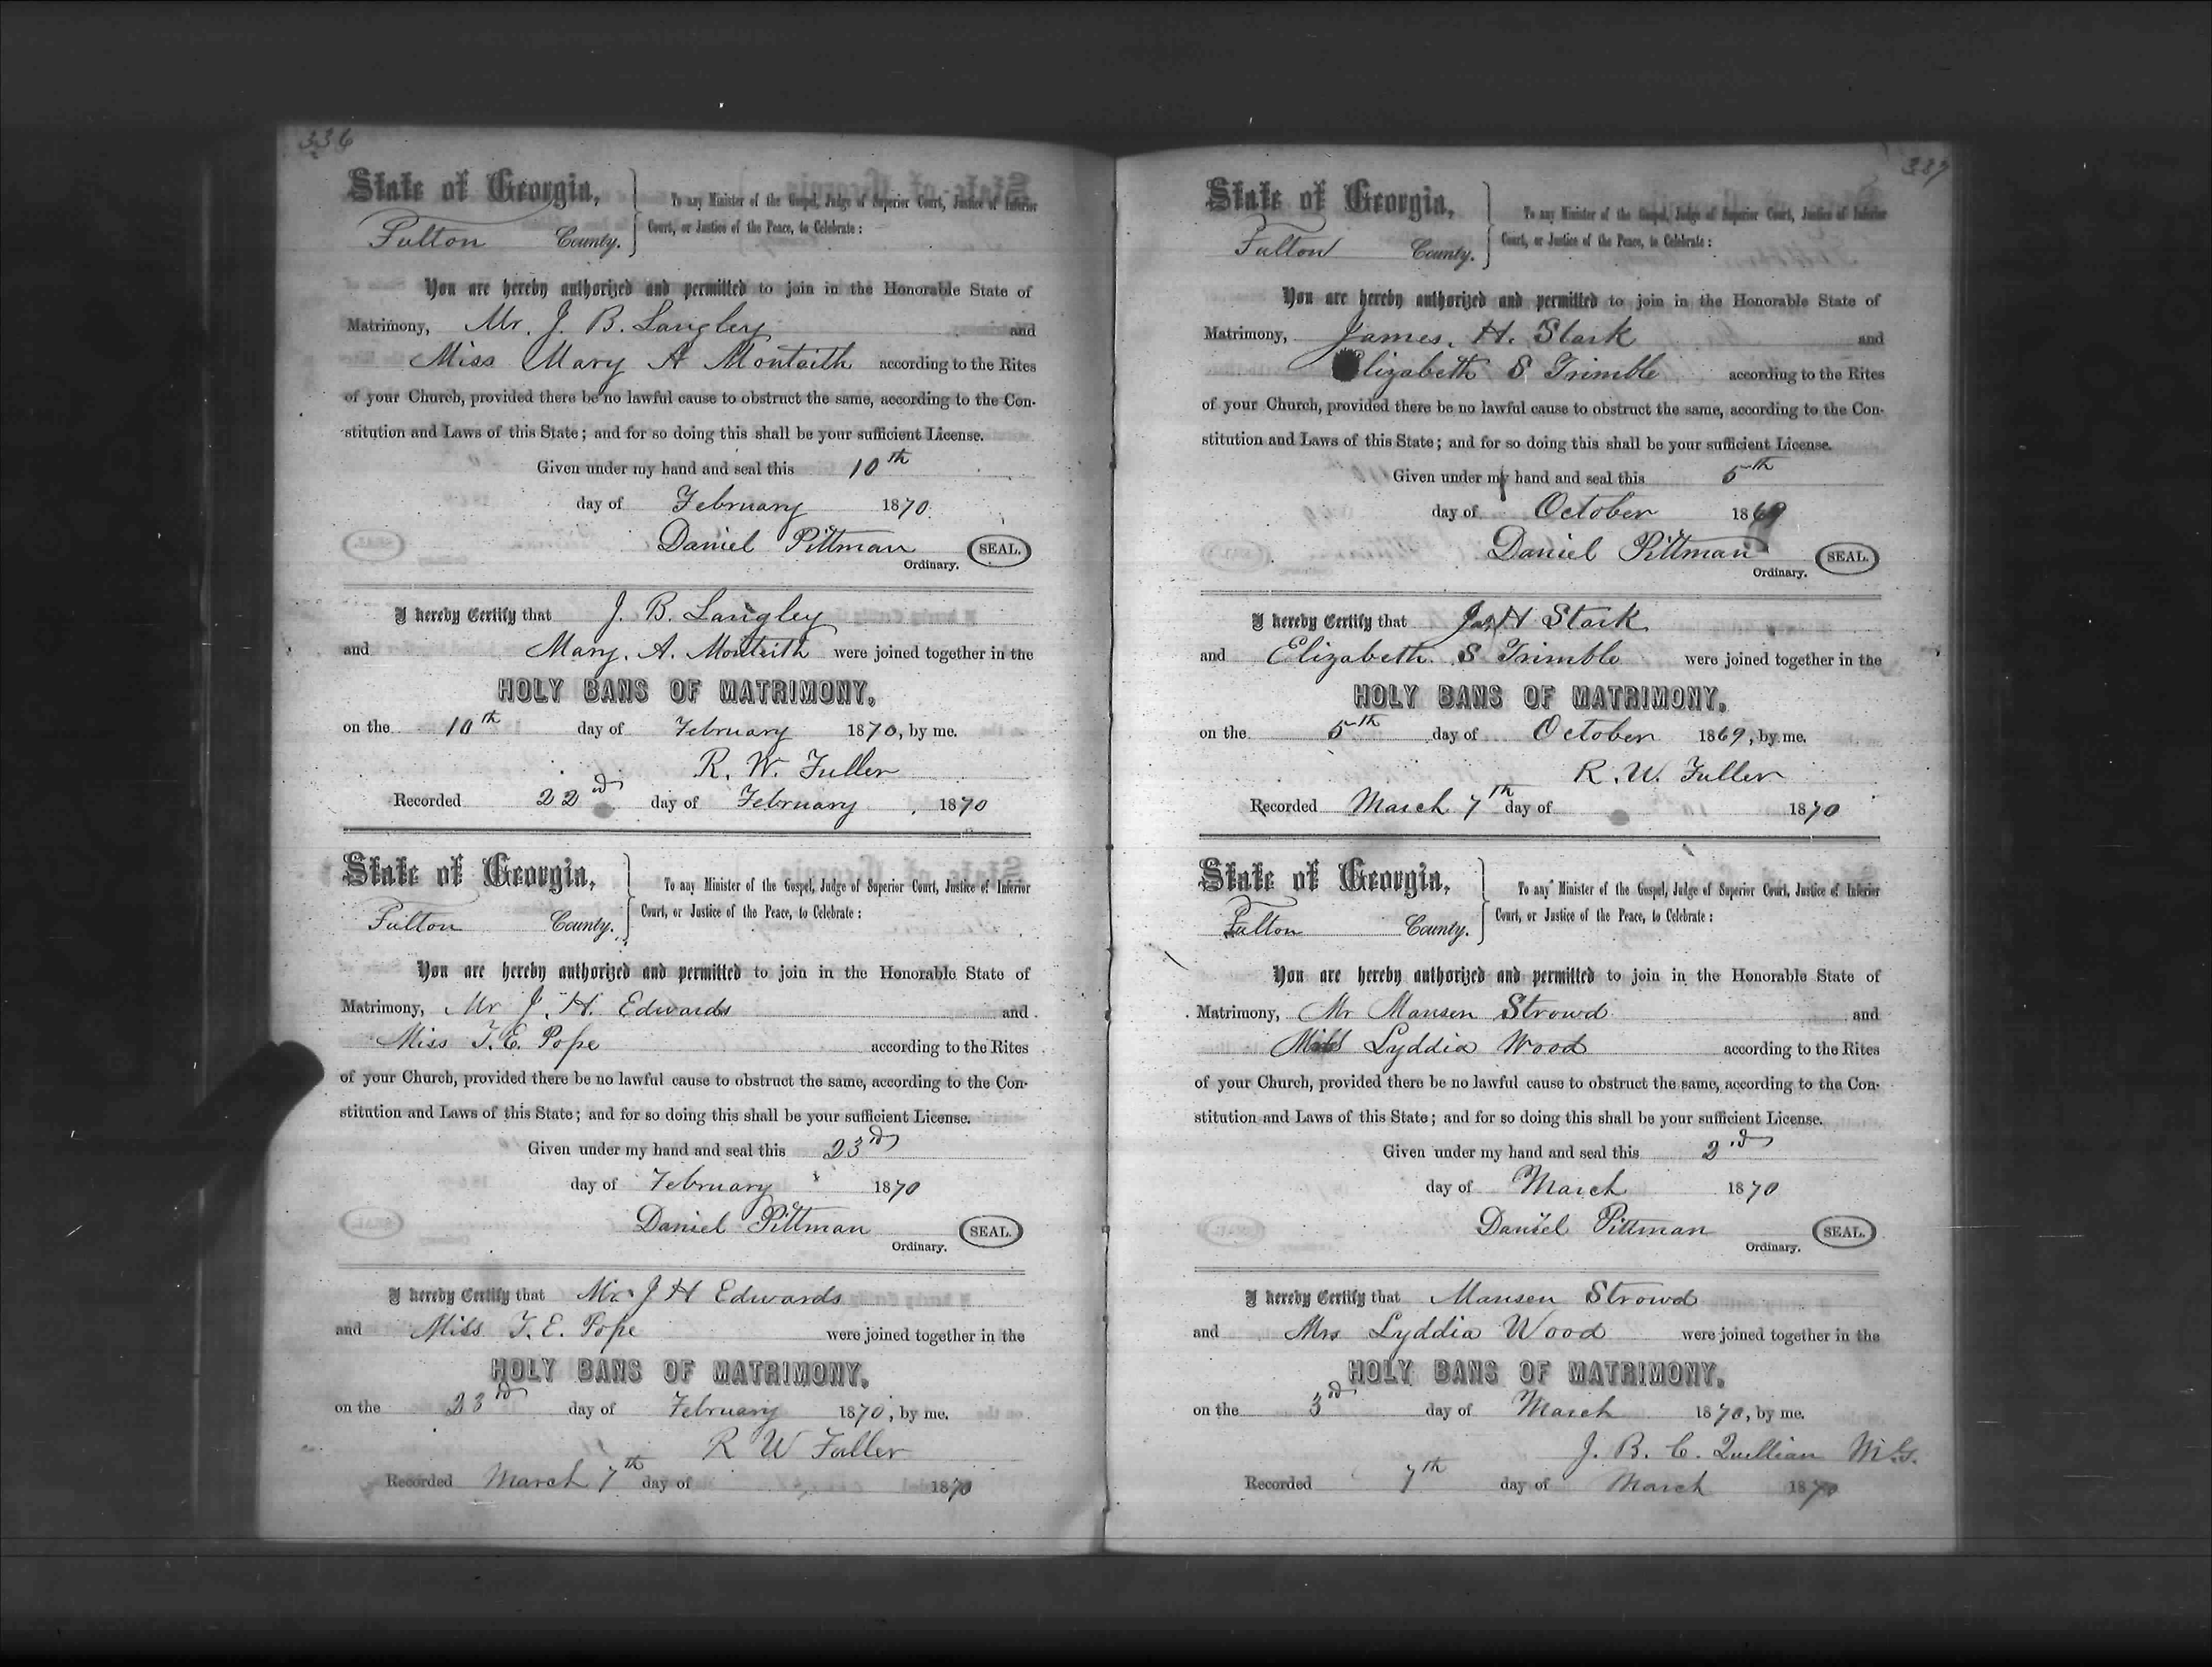 336
State of Georgia,
Fulton County.
To any Minister of the Gospel, Judge of Superior Court, Justice of Inferior
Court, or Justice of the Peace, to Celebrate:
You are hereby authorized and permitted to join in the Honorable State of
Matrimony, Mr. J. B. Langley and
Miss Mary A Monteith according to the Rites
of your Church, provided there be no lawful cause to obstruct the same, according to the Con-
stitution and Laws of this State; and for so doing this shall be your sufficient License.
Given under my hand and seal this 10th
day of February 1870.
Daniel Pittman SEAL.
Ordinary.
I hereby Certify that J. B. Langley
and Mary. A. Monteith were joined together in the
HOLY BANS OF MATRIMONY,
on the 10th day of February 1870, by me.
R. W. Fuller
Recorded 22nd day of February 1870
State of Georgia,
Fulton County.
To any Minister of the Gospel, Judge of Superior Court, Justice of Inferior
Court, or Justice of the Peace, to Celebrate:
You are hereby authorized and permitted to join in the Honorable State of
Matrimony, Mr J. H. Edwards and
Miss T. E. Pope according to the Rites
of your Church, provided there be no lawful cause to obstruct the same, according to the Con-
stitution and Laws of this State; and for so doing this shall be your sufficient License.
Given under my hand and seal this 23rd
day of February 1870
Daniel Pittman SEAL.
Ordinary.
I hereby Certify that Mr. J H Edwards
and Miss T. E. Pope were joined together in the
HOLY BANS OF MATRIMONY,
on the 23rd day of February 1870, by me.
R W Fuller
Recorded March 7th day of 1870
337
State of Georgia,
Fulton County.
To any Minister of the Gospel, Judge of Superior Court, Justice of Inferior
Court, or Justice of the Peace, to Celebrate:
You are hereby authorized and permitted to join in the Honorable State of
Matrimony, James. H. Stark and
Elizabeth S Trimble according to the Rites
of your Church, provided there be no lawful cause to obstruct the same, according to the Con-
stitution and Laws of this State; and for so doing this shall be your sufficient License.
Given under my hand and seal this 5th
day of October 1869
Daniel Pittman SEAL.
Ordinary.
I hereby Certify that Jas H Stark
and Elizabeth. S Trimble were joined together in the
HOLY BANS OF MATRIMONY,
on the 5th day of October 1869, by me.
R. W. Fuller
Recorded March 7th day of 1870
State of Georgia,
Fulton County.
To any Minister of the Gospel, Judge of Superior Court, Justice of Inferior
Court, or Justice of the Peace, to Celebrate:
You are hereby authorized and permitted to join in the Honorable State of
Matrimony, Mr Mansen Strowd and
Lyddia Wood according to the Rites
of your Church, provided there be no lawful cause to obstruct the same, according to the Con-
stitution and Laws of this State; and for so doing this shall be your sufficient License.
Given under my hand and seal this 2nd
day of March 1870
Daniel Pittman SEAL.
Ordinary.
I hereby Certify that Mansen Strowd
and Mrs Lyddia Wood were joined together in the
HOLY BANS OF MATRIMONY,
on the 3rd day of March 1870, by me.
J. B. C. Quillian M.G.
Recorded 7th day of March 1870